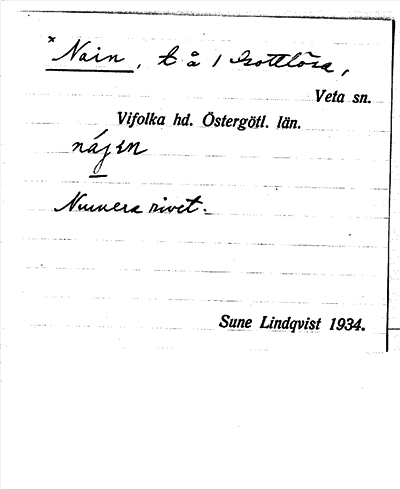 * Nain, t å 1 Gottlösa,
Veta sn.
Vifolka hd. Östergötl. län.
nájen
Numera rivet.
Sune Lindqvist 1934.